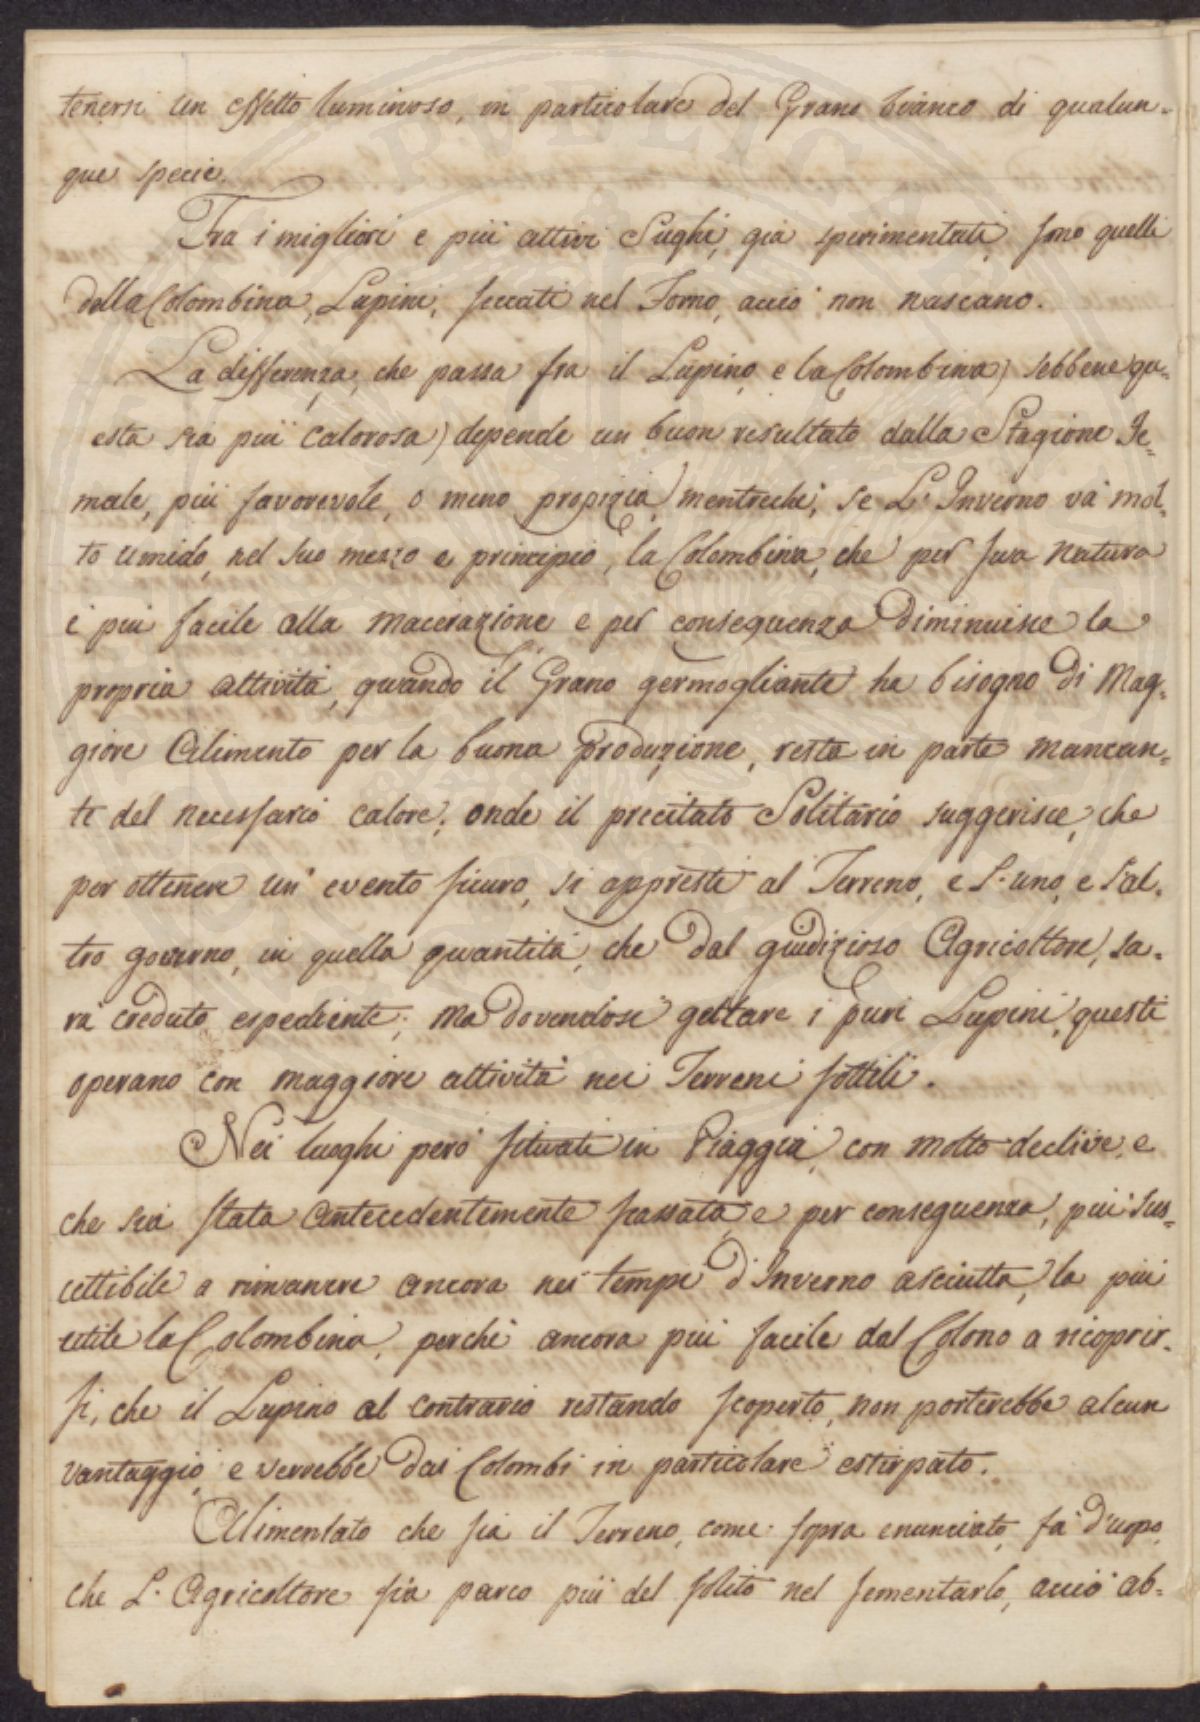 tenersi un effetto luminoso, in particolare del Grano bianco di qualun-
que specie.
Fra i migliori e più attivi Sughi, già sperimentati, sono quelli
della Colombina, Lupini, seccati nel Forno, acciò non nascano.
La differenza, che passa fra il Lupino, e la Colombina, (sebbene qu-
esta sia più calorosa) depende un buon resultato dalla Stagione Je-
male, più favorevole, o meno propizia, mentrechè, se L'Inverno và mol-
to umido, nel suo mezzo e principio, la Colombina, che per sua natura
è più facile alla macerazione e per conseguenza diminuisce la
propria attività, quando il Grano germogliante ha bisogno di Mag-
giore Alimento per la buona produzione, resta in parte mancan-
te del necessario calore; onde il precitato Solitario suggerisce, che
per ottenere un' evento sicuro, si appresti al Terreno, e L'uno, e l'al-
tro governo, in quella quantità, che dal giudizioso Agricoltore, sa-
rà creduto espediente; ma dovendosi gettare i puri Lupini, questi
operano con maggiore attività nei Terreni sottili.
Nei luoghi però situati in Piaggia, con molto declive, e
che sia stata antecedentemente scassata, e per conseguenza, più sus-
cettibile a rimanere ancora nei tempi d'Inverno asciutta, la più
utile la Colombina, perchè ancora più facile dal Colono a ricoprir-
si, che il Lupino al contrario restando scoperto, non porterebbe alcun
vantaggio, e verrebbe dai Colombi in particolare estirpato.
Alimentato che sia il Terreno, come sopra enunciato, fà d'uopo,
che L'Agricoltore sia parco più del solito nel sementarlo, acciò ab-